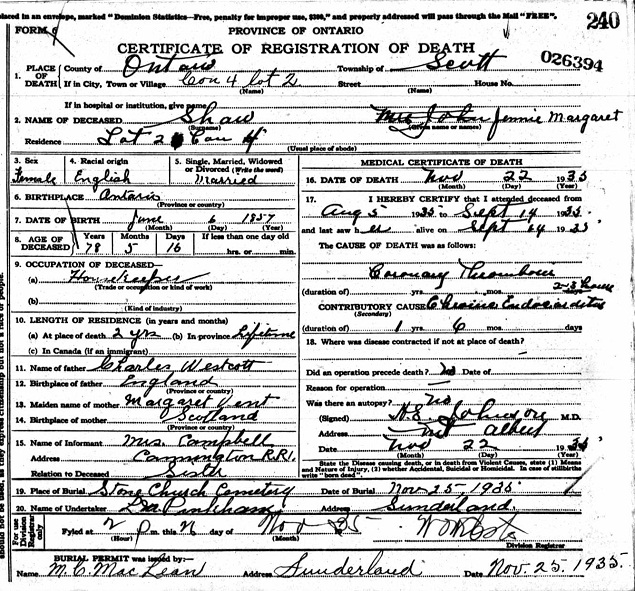 placed in an envelope, marked "Dominion Statistics—Free, penalty for improper use, $300," and properly addressed will pass through the Mail "FREE".
FORM
PROVINCE OF ONTARIO
240
CERTIFICATE OF REGISTRATION OF DEATH
026394
1. PLACE OF DEATH County of Ontario Township of Scott
If in City, Town or Village Con 4 lot 2 Street House No.
(Name) (Name)
If in hospital or institution, give name
2. NAME OF DECEASED Shaw Mrs John Jennie Margaret
(Surname) (Given name or names)
Residence Lot 2 Con 4
(Usual place of abode)
3. Sex Female
4. Racial origin English
5. Single, Married, Widowed or Divorced (Write the word) Married
6. BIRTHPLACE Ontario
(Province or country)
7. DATE OF BIRTH June 6 1857
(Month) (Day) (Year)
8. AGE OF DECEASED Years 78 Months 5 Days 16 If less than one day old hrs. or min.
9. OCCUPATION OF DECEASED—
(a) Housekeeper
(Trade or occupation or kind of work)
(b)
(Kind of industry)
10. LENGTH OF RESIDENCE (in years and months)
(a) At place of death 2 yrs (b) In province Lifetime
(c) In Canada (if an immigrant)
11. Name of father Charles Westcott
12. Birthplace of father England
(Province or country)
13. Maiden name of mother Margaret Vent
14. Birthplace of mother Scotland
(Province or country)
15. Name of Informant Mrs. Campbell
Address Cannington R.R.1.
Relation to Deceased Sister
MEDICAL CERTIFICATE OF DEATH
16. DATE OF DEATH Nov 22 1935
(Month) (Day) (Year)
17. I HEREBY CERTIFY that I attended deceased from
Aug 5 1935 to Sept 14 1935.
and last saw her alive on Sept 14 1935
The CAUSE OF DEATH was as follows:
Coronary Thrombosis
(duration of) yrs. mos. days 2-3 hours
CONTRIBUTORY CAUSE Chronic Endocarditis
(Secondary)
(duration of) 1 yrs. 6 mos. days
18. Where was disease contracted if not at place of death?
Did an operation precede death? No Date of
Reason for operation —
Was there an autopsy? No
(Signed) Johnson M.D.
Address Mt Albert
Date Nov 22 1935
(Month) (Day) (Year)
State the Disease causing death, or in death from Violent Causes, state (1) Means and Nature of Injury, (2) whether Accidental, Suicidal or Homicidal. In case of stillbirth write "born dead".
19. Place of Burial Stone Church Cemetery Date of Burial Nov. 25 - 1935
20. Name of Undertaker Address Sunderland.
For use of Division Registrar only
Fyled at 2 P m. this day of Nov 1935
(Hour) (Month)
Division Registrar
BURIAL PERMIT was issued by:—
Name M. C. MacLean Address Sunderland Date Nov. 25. 1935.